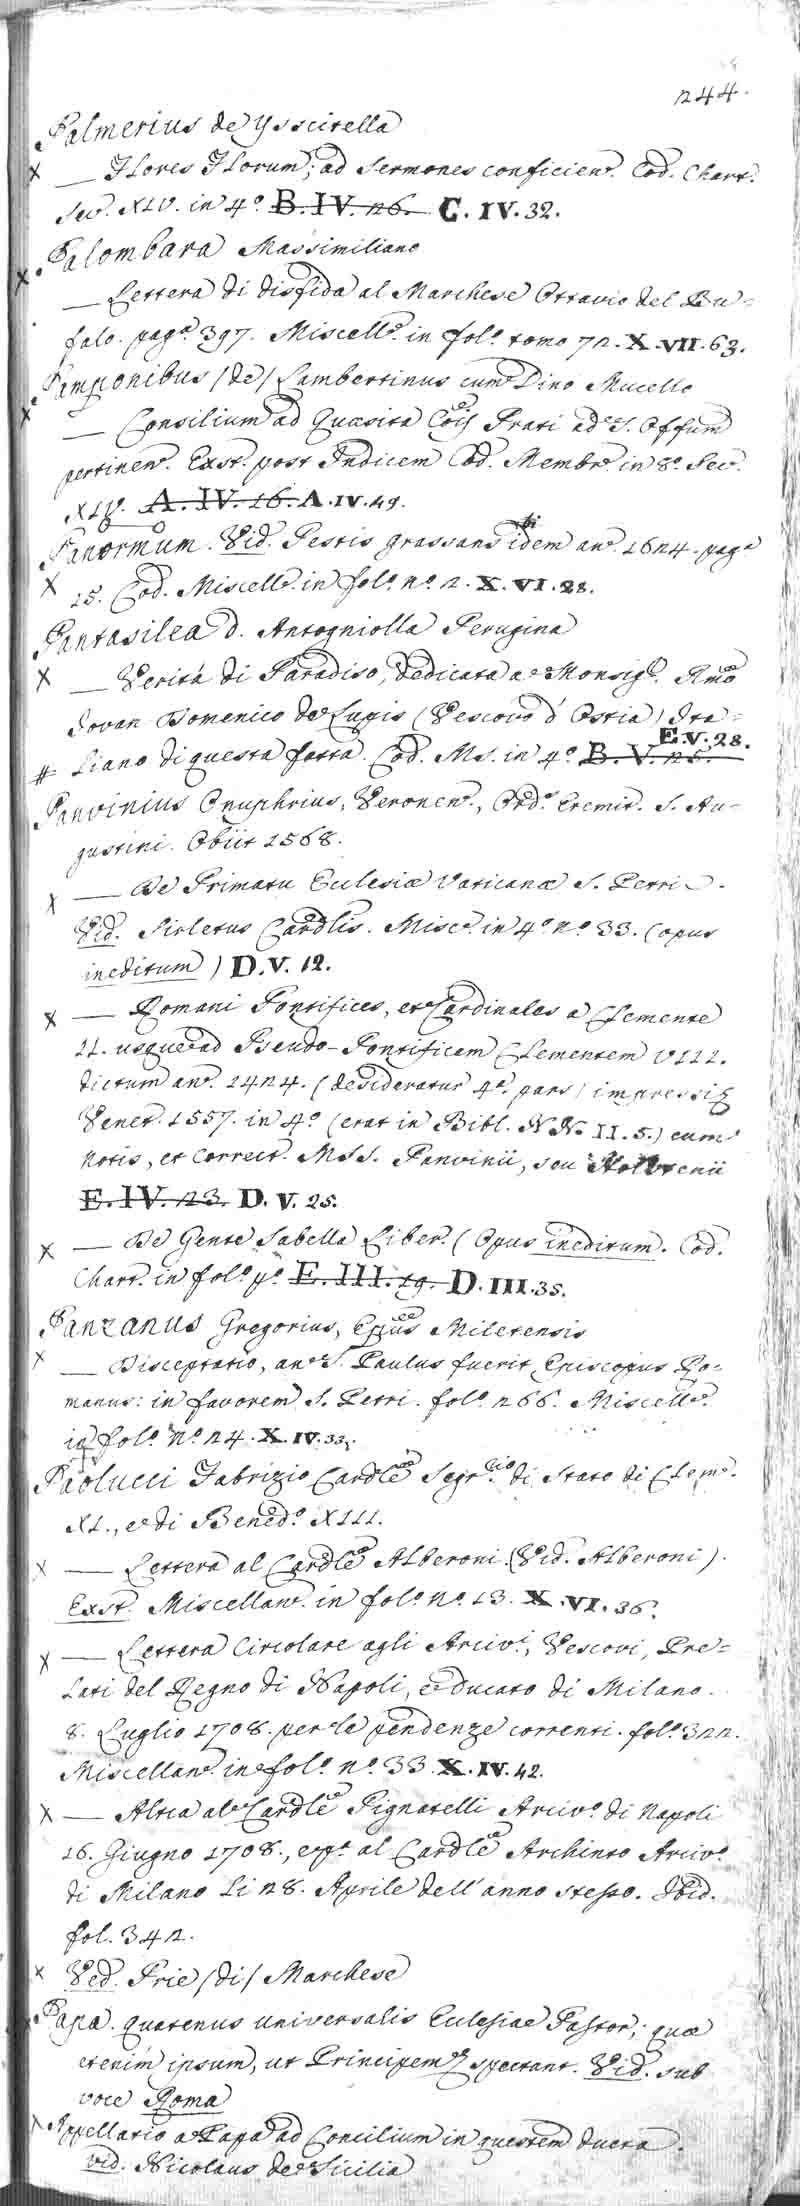 244.
Palmerius de Ysscirella
— Flores Florum; ad Sermones conficien. Cod. Chart.
Sec. XIV. in 4º B.IV.26. C.IV.32.
Palombara Massimiliano
— Lettera di disfida al Marchese Ottavio del Bu=
falo. pagª 397. Miscell. in folº tomo 72. X.VII.63.
Pamponibus /de/ Lambertinus cum Dino Mucello
— Consilium ad Quæsita Cois Prati ad S. Offum
pertinen. Exst. post Indicem Cod. Membr. in 8º Sec.
XIV. A.IV.16. A.IV.49.
Panormum. Vid. Pestis grassans ibidem anº 1624. pagª
15. Cod. Miscell. in folº nº 2. X.VI.28.
Pantasilea d. Antogniolla Perugina
— Verità di Paradiso, dedicata a Monsigr. Rmo
Jovan Domenico de Lupis (Vescovo d'Ostia) Ita=
E.V.28.
liano di questa fatta. Cod. Ms. in 4º B.V.25.
Panvinius Onuphrius, Veronen., Ord. Eremit. S. Au-
gustini. Obiit 1568.
— De Primatu Eclesiæ Vaticanæ S. Petri.
Vid. Sirletus Cardlis. Misc. in 4º nº 33. (opus
ineditum) D.V.12.
— Romani Pontifices, et Cardinales a Clemente
II. usque ad Pseudo-Pontificem Clementem VIII.
dictum anº 1424. (desideratur 4ª pars) impressis
Venet. 1557. in 4º (erat in Bibl. N.N. II.5.) cum
notis, et correct. MSS. Panvinii, seu Holstenii
E.IV.23. D.V.25.
— De Gente Sabella Liber. (Opus ineditum. Cod.
Chart. in folº pº E.III.19. D.III.35.
Panzanus Gregorius, Epus Miletensis
— Disceptatio, an S. Paulus fuerit Episcopus Ro-
manus: in favorem S. Petri. folº 266. Miscell.
in folº nº 24. X.IV.33.
Paolucci Fabrizio Cardle Segrrio di Stato di Clem.
XI., e di Benedº XIII.
— Lettera al Cardle Alberoni. (Vid. Alberoni).
Exst. Miscellan. in folº nº 13. X.VI.36.
— Lettera Circolare agli Arciv.i, Vescovi, Pre=
lati del Regno di Napoli, e Ducato di Milano.
8. Luglio 1708. per le pendenze correnti. folº 322.
Miscellan. in folº nº 33. X.IV.42.
— Altra al Cardle Pignatelli Arcivº di Napoli
16. Giugno 1708., e al Cardle Archinto Arcivº
di Milano li 28. Aprile dell'anno stesso. Ibid.
fol. 342.
Ved. Prie /di/ Marchese
Papa. quatenus universalis Eclesiae Pastor; quæ
etenim ipsum, ut Principem spectant. Vid. sub
voce Roma
Appellatio a Papa ad Concilium in questem ducta.
vid. Nicolaus de Sicilia